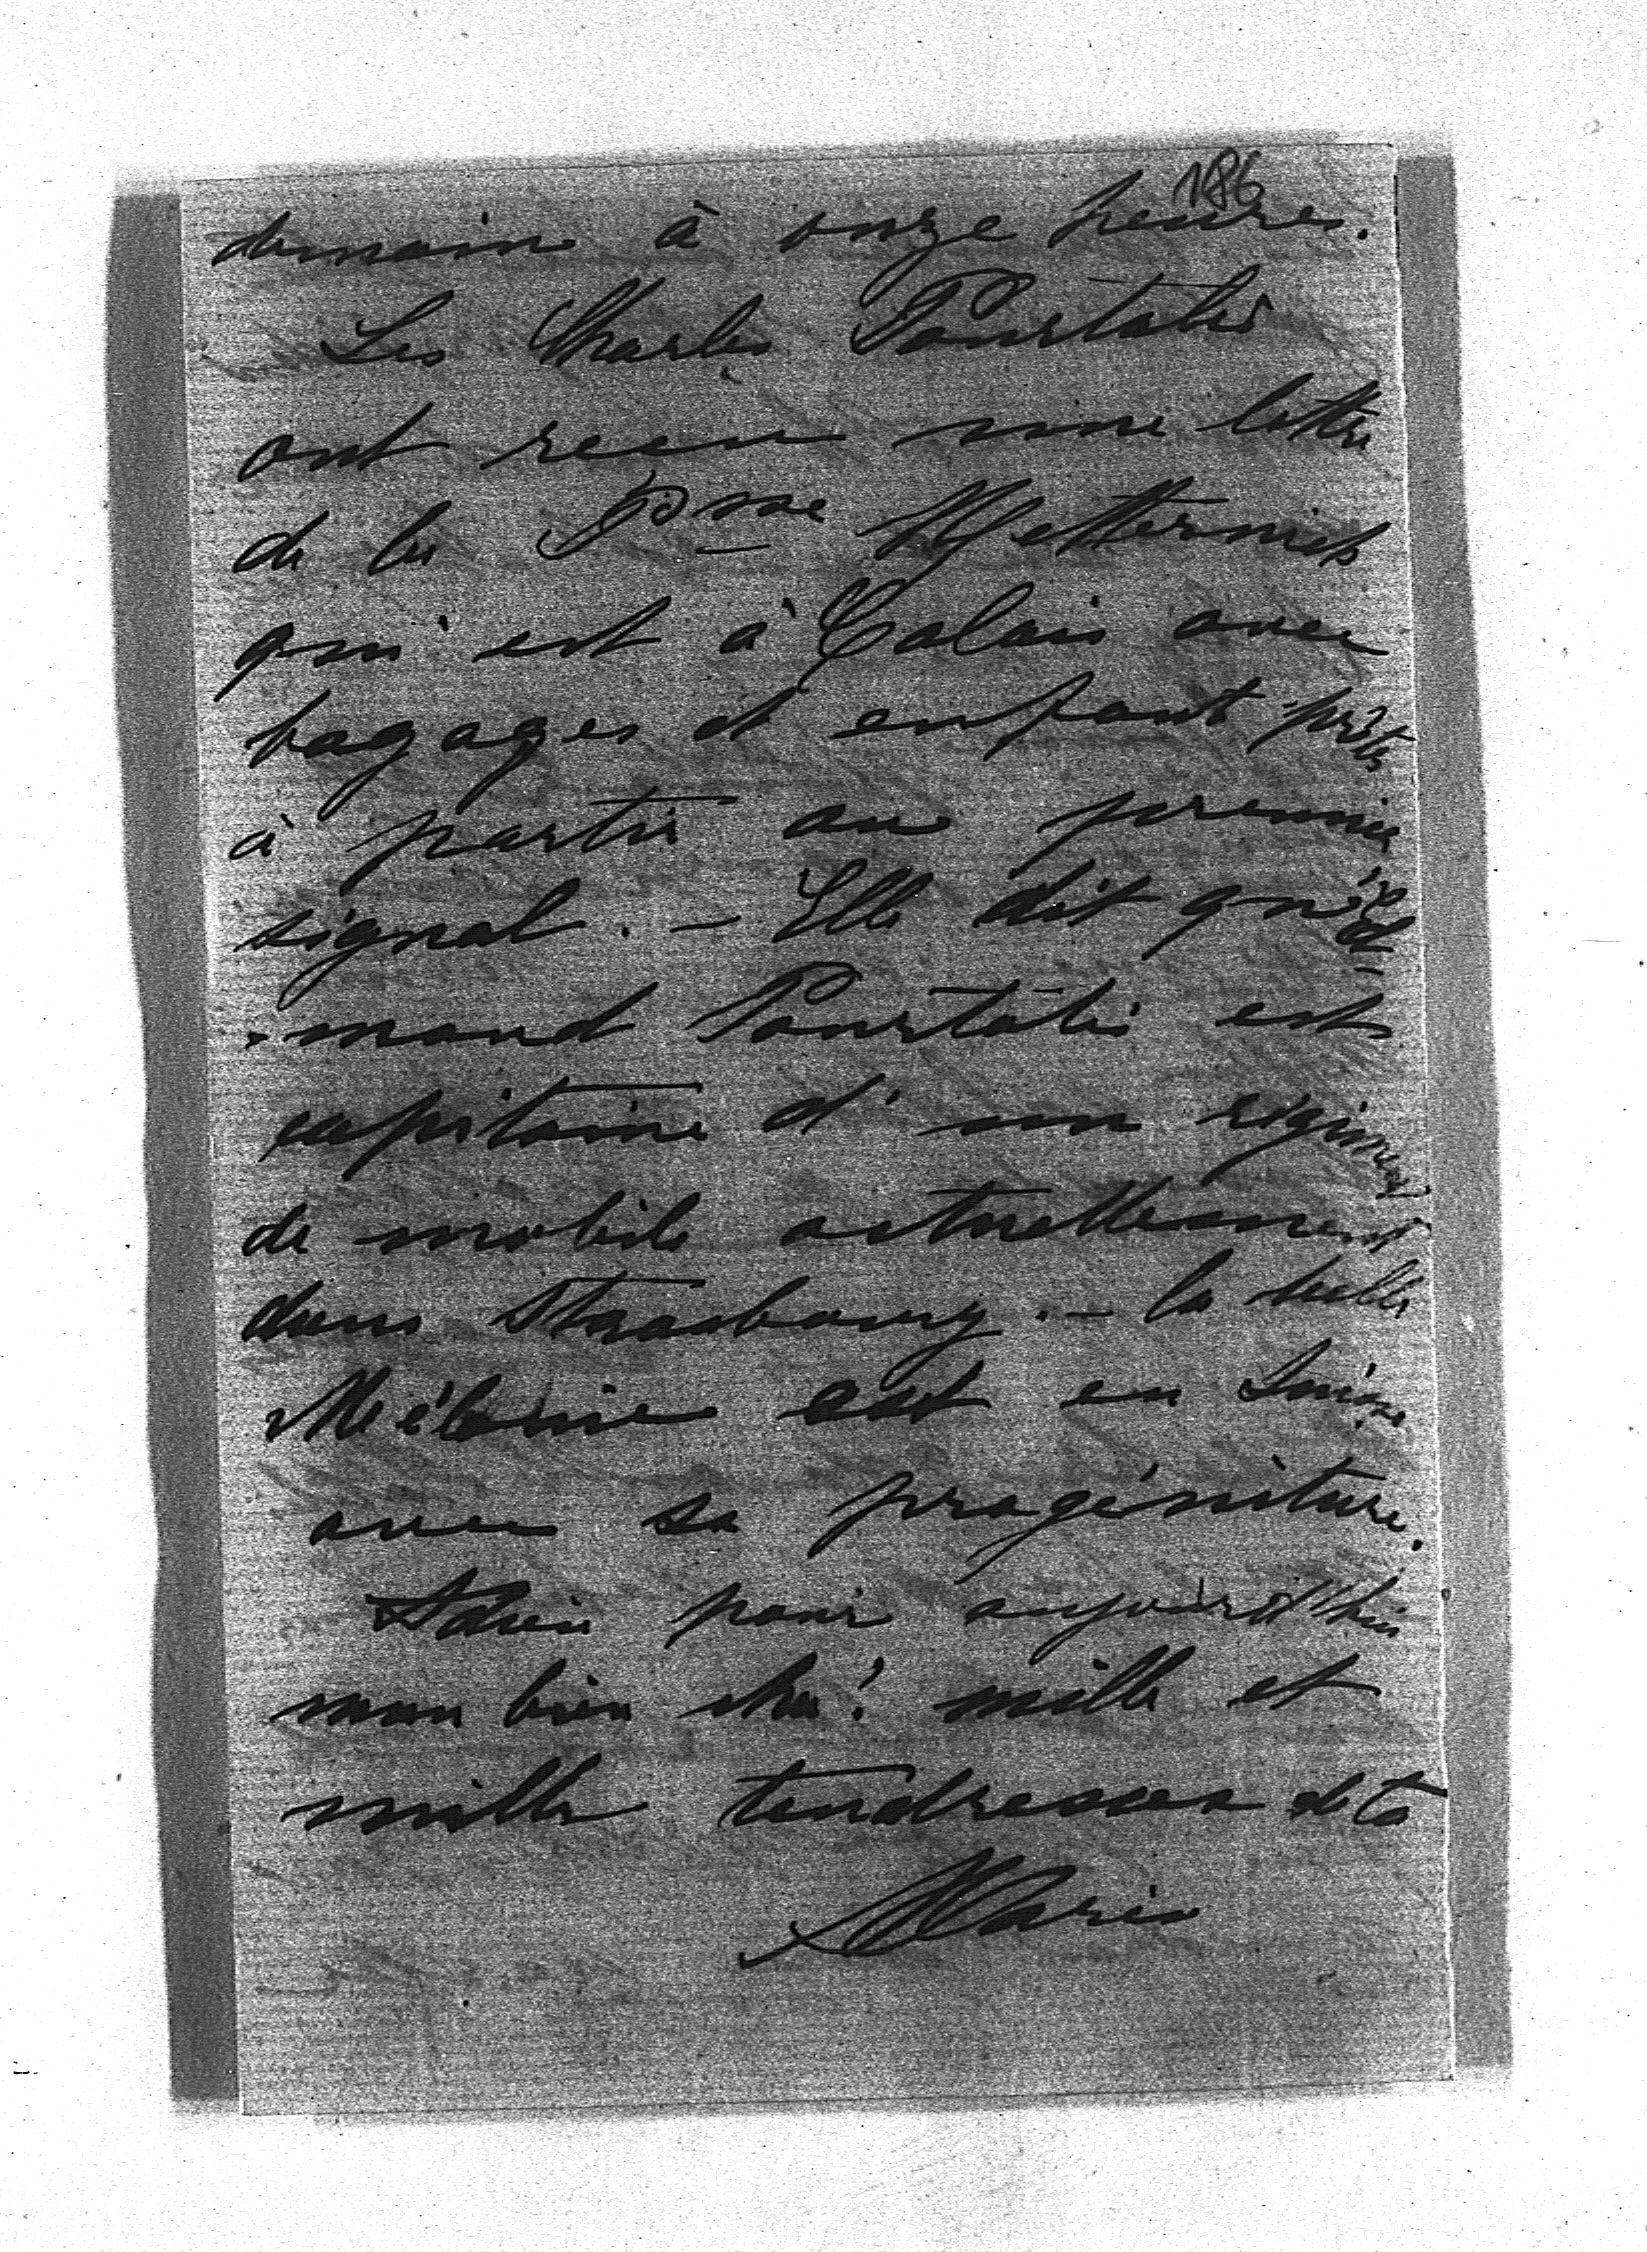 186
demain à onze heures.
Les Charles Pourtalès
ont reçu une lettre
de la Psse Metternich
qui est à Calais avec
bagages et enfant prête
à partir au premier
signal. - Elle dit qu'Ed-
-mond Pourtalès est
capitaine d'un régiment
de mobile actuellement
dans Strasbourg. - la belle
Mélanie est en Suisse
avec sa progéniture.
Adieu pour aujourd'hui
mon bien cher! mille et
mille tendresses de ta
Marie